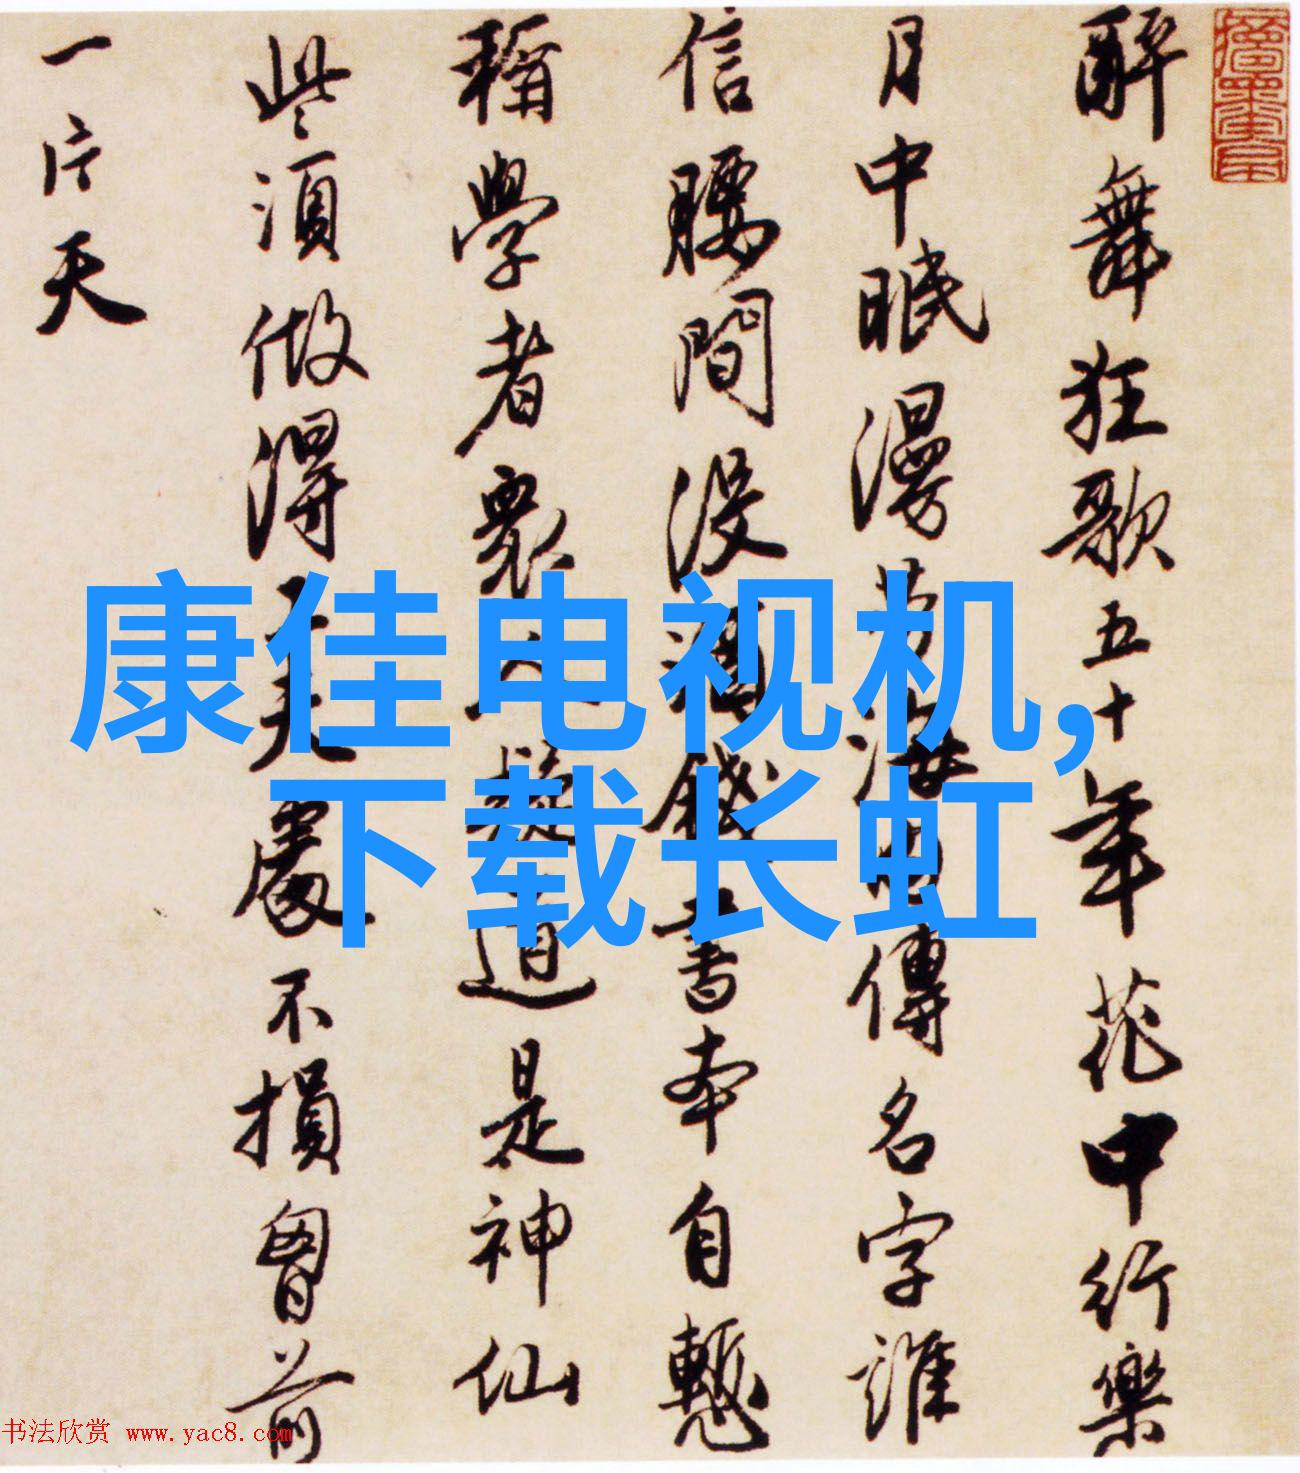 醉舞狂歌五十年花中行樂
月中眠漫勞海內傳名字誰
信腰間沒酒錢書本自慙
稱學者衆人疑道是神仙
些須做得工夫處不損胷前
一片天
康佳电视机,
下载长虹
书法欣赏 www.yac8.com